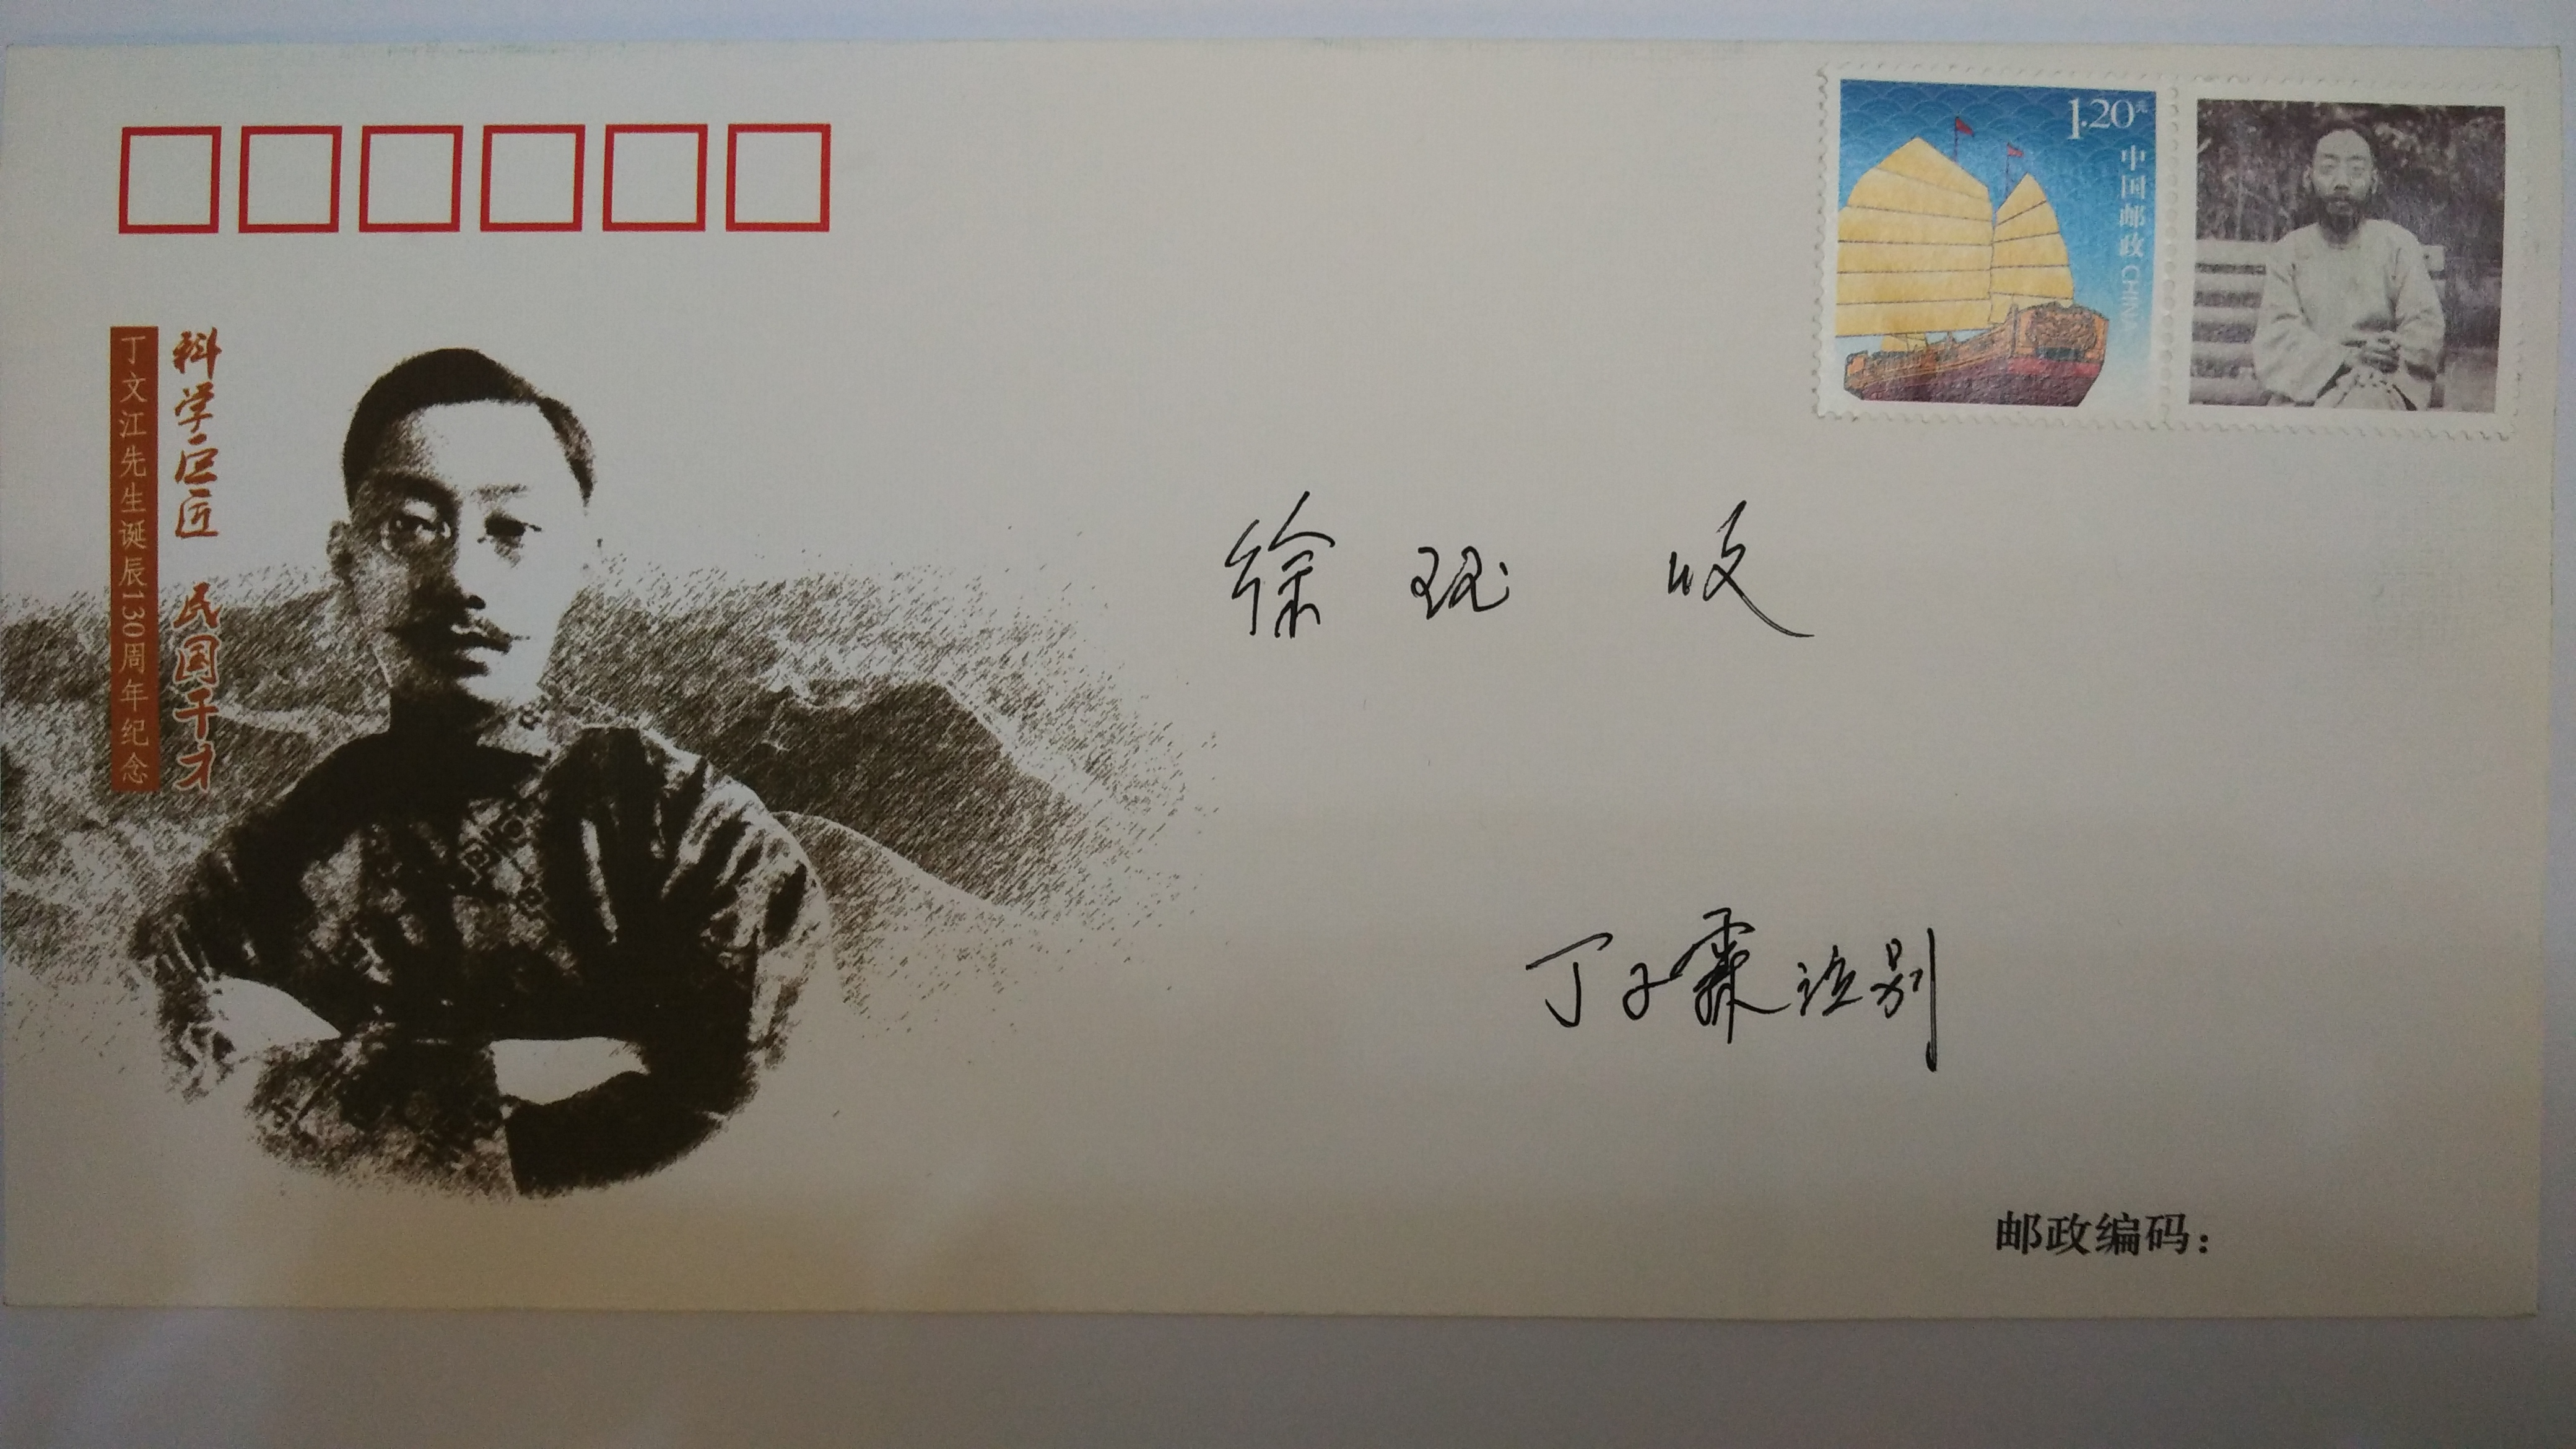 1.20元
中国邮政 CHINA
科学巨匠 民国干才
丁文江先生诞辰130周年纪念
徐珏 收
丁子霖
邮政编码：